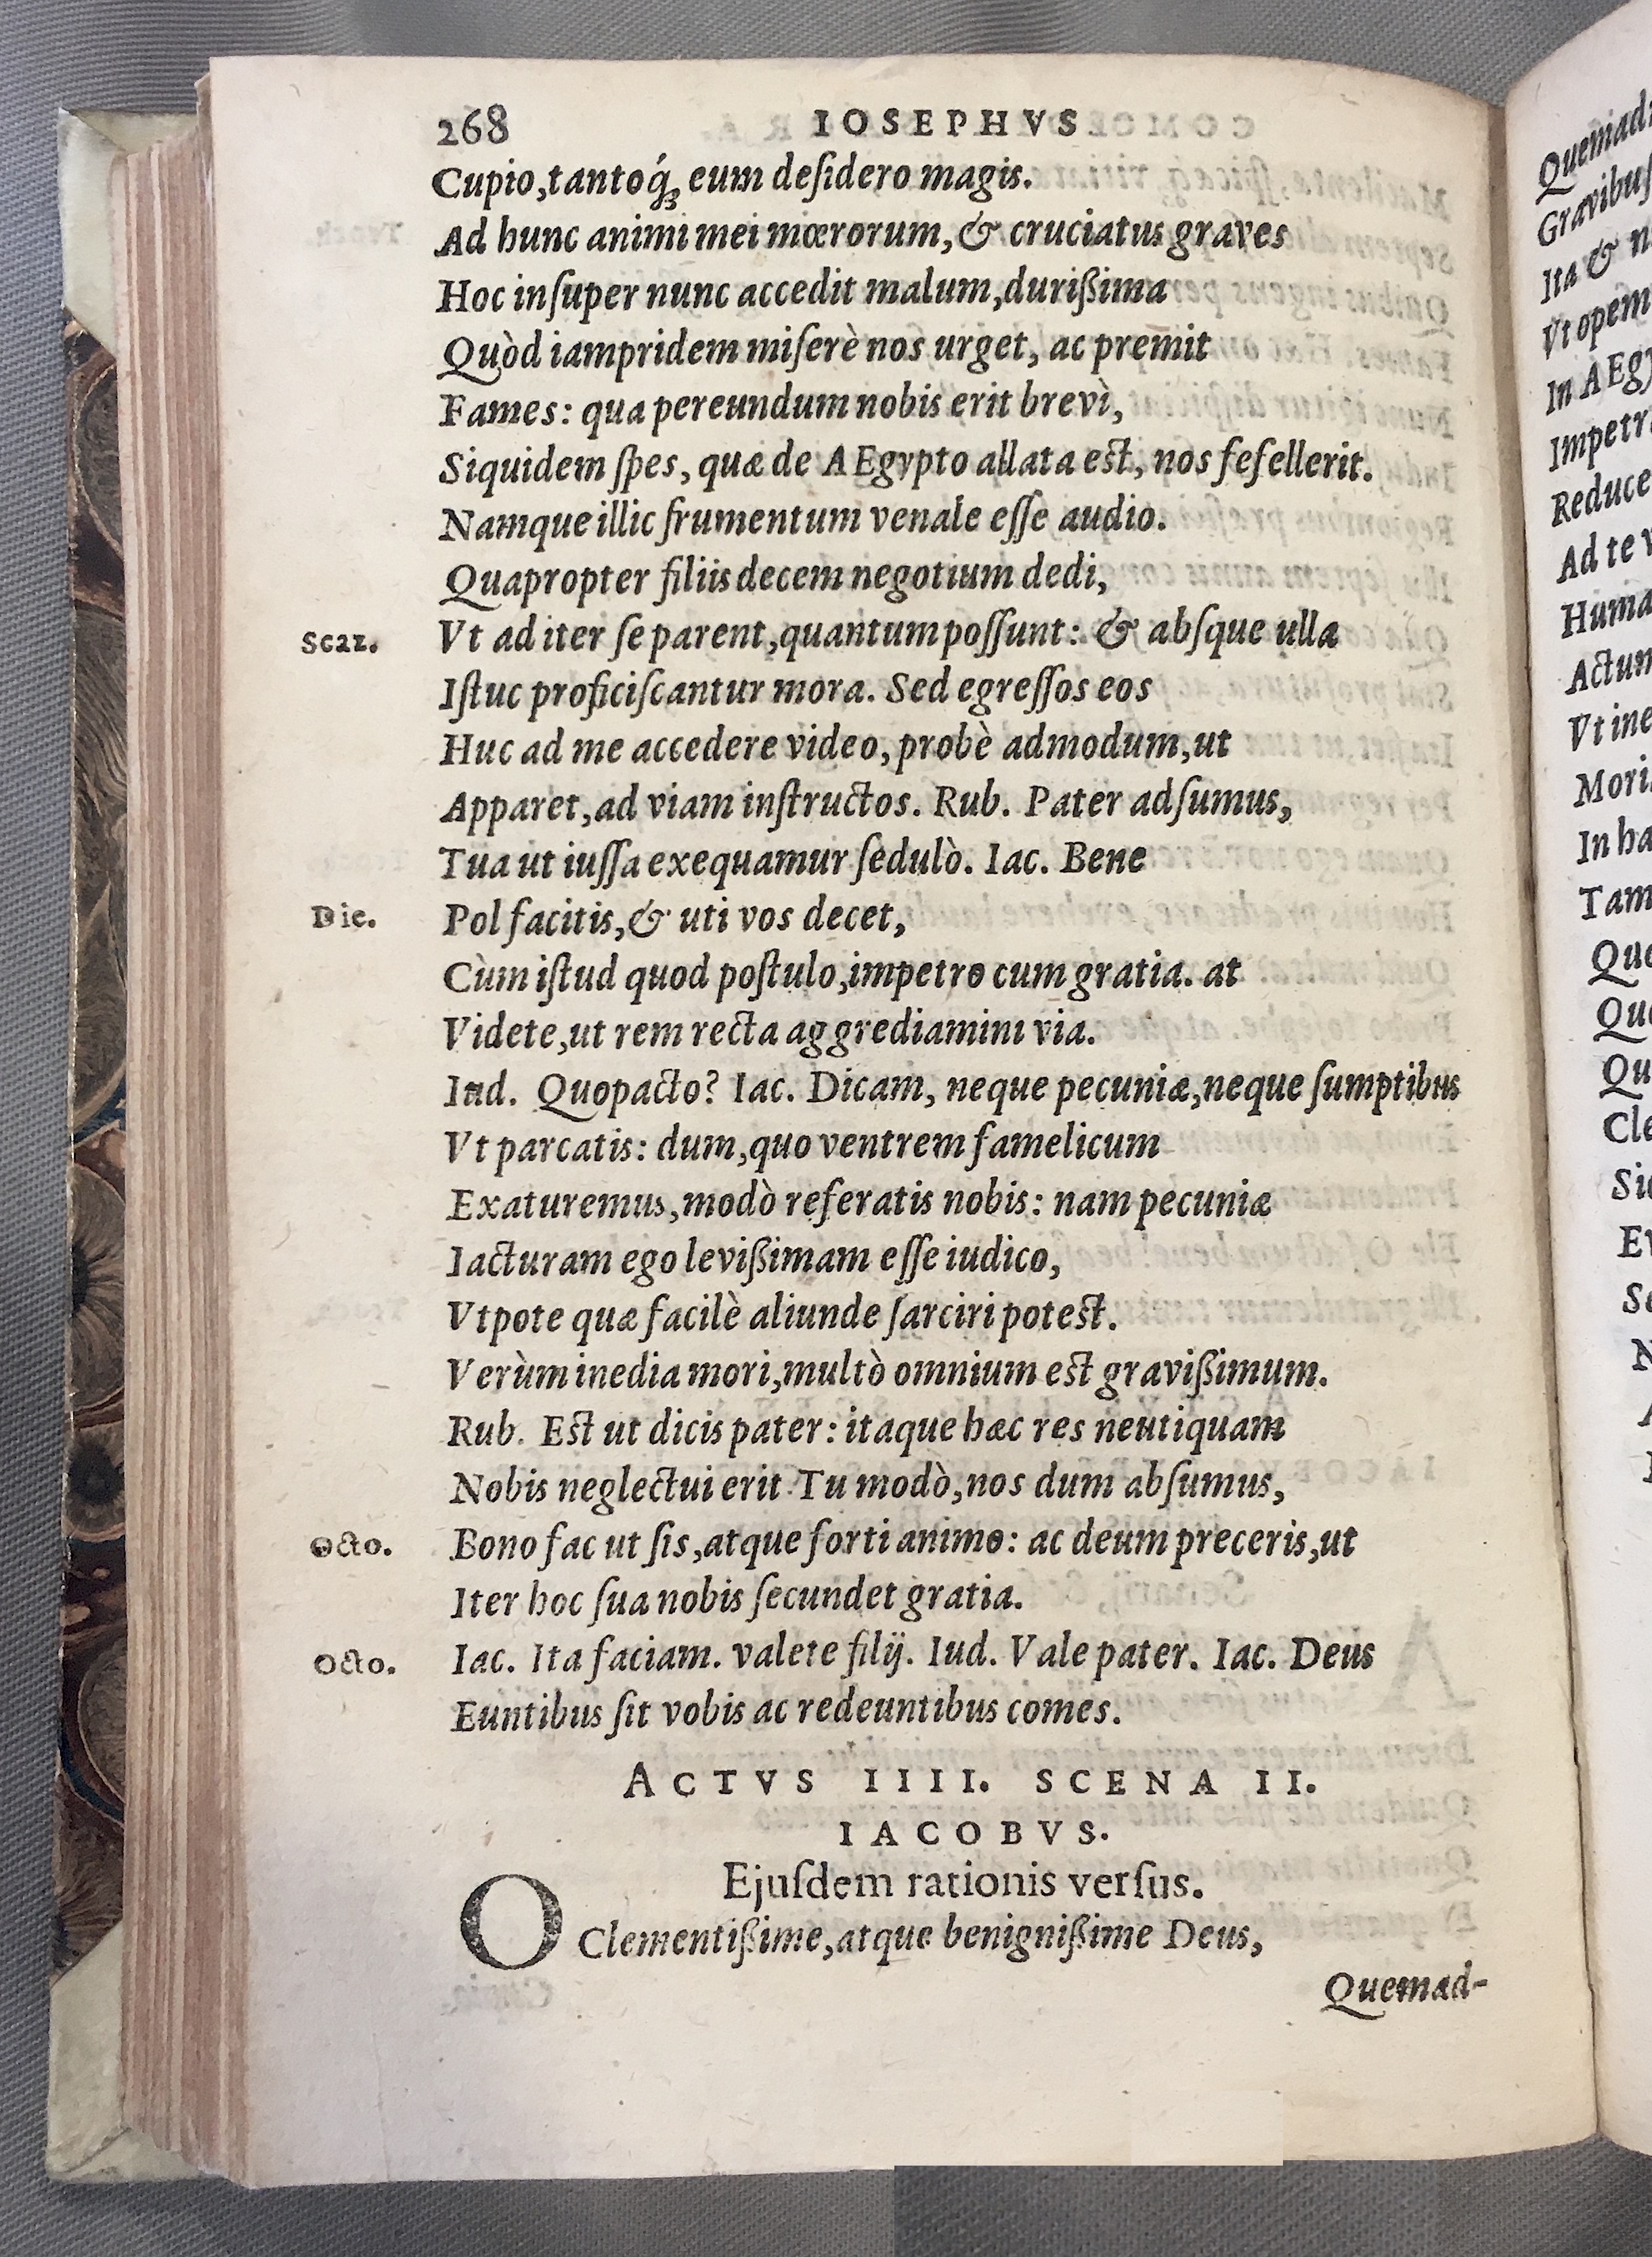 268 IOSEPHVS
Cupio,tantoq́; eum deſidero magis.
Ad hunc animi mei mœrorum,& cruciatus graves
Hoc inſuper nunc accedit malum,durißima
Quòd iampridem miſerè nos urget, ac premit
Fames: qua pereundum nobis erit brevì,
Siquidem ſpes, quæ de AEgypto allata est, nos fefellerit.
Namque illic frumentum venale eſſe audio.
Quapropter filiis decem negotium dedi,
Scaz. Vt ad iter ſe parent,quantum poſſunt: & abſque ulla
Iſtuc proficiſcantur mora. Sed egreſſos eos
Huc ad me accedere video, probè admodum,ut
Apparet,ad viam inſtructos. Rub. Pater adſumus,
Tua ut iuſſa exequamur ſedulò. Iac. Bene
Die. Pol facitis,& uti vos decet,
Cùm iſtud quod poſtulo,impetro cum gratia. at
Videte,ut rem recta aggrediamini via.
Iud. Quo pacto? Iac. Dicam, neque pecuniæ,neque ſumptibus
Vt parcatis: dum,quo ventrem famelicum
Exaturemus,modò referatis nobis: nam pecuniæ
Iacturam ego levißimam eſſe iudico,
Vtpote quæ facilè aliunde ſarciri potest.
Verùm inedia mori,multò omnium est gravißimum.
Rub. Est ut dicis pater: itaque hæc res neutiquam
Nobis neglectui erit. Tu modò,nos dum abſumus,
Octo. Bono fac ut ſis,atque forti animo: ac deum preceris,ut
Iter hoc ſua nobis ſecundet gratia.
Octo. Iac. Ita faciam. valete filij. Iud. Vale pater. Iac. Deus
Euntibus ſit vobis ac redeuntibus comes.
ACTVS IIII. SCENA II.
IACOBVS.
Ejuſdem rationis verſus.
O Clementißime,atque benignißime Deus,
Quemad-